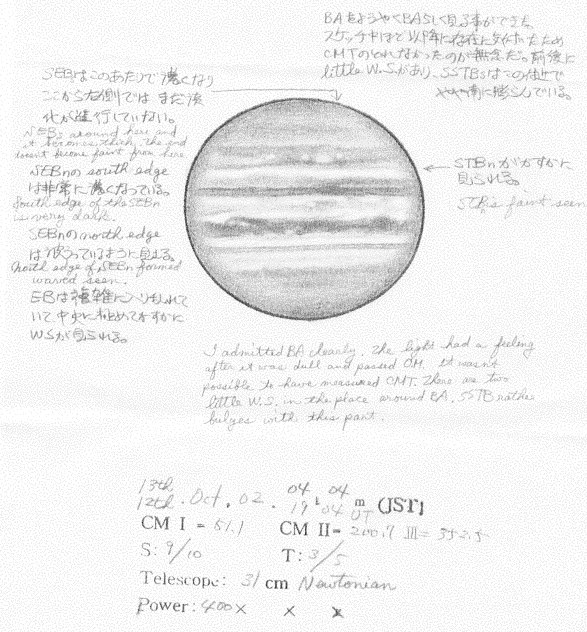 BAをようやくBAらしく見る事ができた。
スケッチ中ほど以降に存在に気付いたため
CMTのとれなかったのが無念だ。前後に
little W.S.があり、SSTBsはこの付近で
やや南に膨らんでいる。
SEBはこのあたりで濃くなり
ここから左側ではまだ淡
化が進行していない。
SEBs around here and
it becomes thick. the end
doesnt become faint from here
SEBnのsouth edge
は非常に濃くなっている。
South edge of the SEBn
is very dark.
SEBnのnorth edge
は波うっているように見える。
North edge of SEBn formed
waved seen.
EBは複雑に入り乱れて
いて中央に極めてかすかに
WSが見られる。
STBnがかすかに
見られる。
STBs faint seen
I admitted BA clearly. The light had a feeling
after it was dull and passed CM. It wasn't
possible to have measured CMT. There are two
little W.S. in the place around BA. SSTB rather
bulges with this part.
13th 04 04
12th. Oct. 02. 19 h 04 m (JST)
UT
CM I = 51.1 CM II = 200.7 III = 352.5
S: 9/10 T: 3/5
Telescope: 31 cm Newtonian
Power: 400× × ×